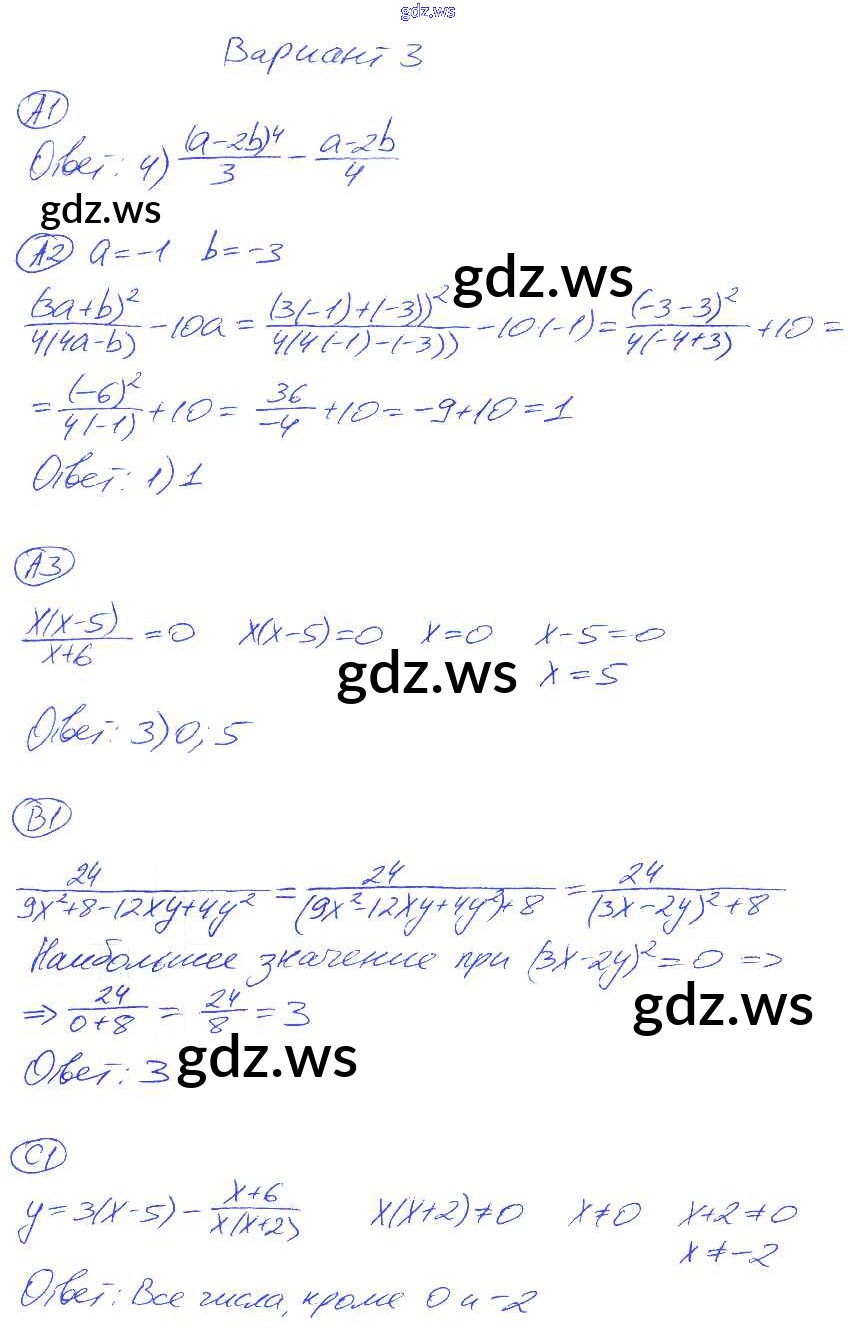 gdz.ws
Вариант 3
А1
Ответ: 4) (a-2b)^4/3 - (a-2b)/4
gdz.ws
А2 a=-1 b=-3
gdz.ws
(3a+b)²/4(4a-b) -10a = (3(-1)+(-3))²/4(4(-1)-(-3)) -10(-1) = (-3-3)²/4(-4+3) +10 =
= (-6)²/4(-1) +10 = 36/-4 +10 = -9+10 = 1
Ответ: 1) 1
А3
x(x-5)/x+6 = 0 x(x-5)=0 x=0 x-5=0
gdz.ws x=5
Ответ: 3) 0; 5
В1
24/9x²+8-12xy+4y² = 24/(9x²-12xy+4y²)+8 = 24/(3x-2y)²+8
Наибольшее значение при (3x-2y)²=0 =>
=> 24/0+8 = 24/8 = 3
gdz.ws
Ответ: 3 gdz.ws
С1
y=3(x-5) - x+6/x(x+2) x(x+2)≠0 x≠0 x+2≠0
x≠-2
Ответ: Все числа, кроме 0 и -2